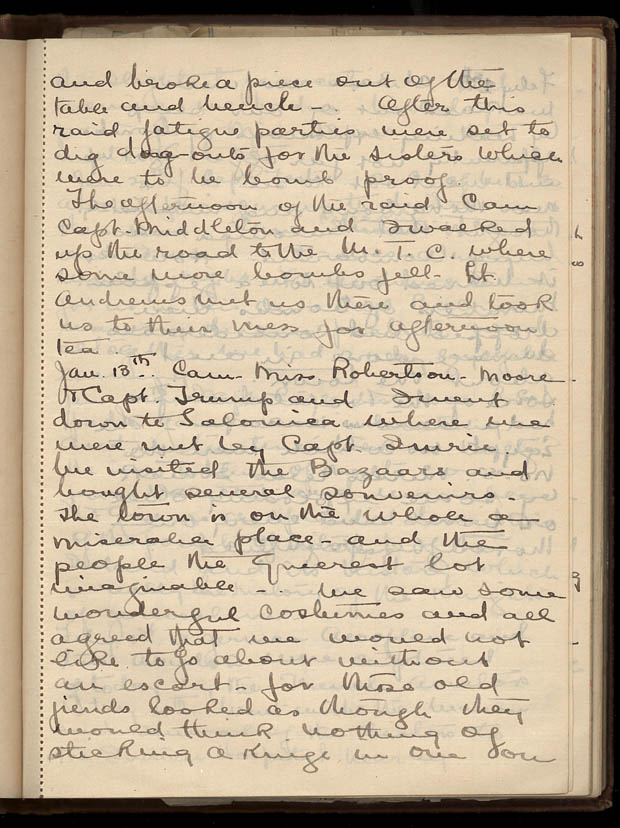 and broke a piece out of the
table and bench - After this
raid fatigue parties were set to
dig dog-outs for the sisters which
were to be bomb proof.
The afternoon of the raid Cam
Capt. Middleton and I walked
up the road to the M. T. C. where
some more bombs fell - Lt.
Andrews met us there and took
us to their mess for afternoon
tea
Jan. 13th. Cam - Miss Robertson - Moore
& Capt. Trump and I went
down to Salonica where we
were met by Capt. Imrie.
We visited the Bazaars and
bought several souvenirs -
The town is on the whole a
miserable place - and the
people the querest lot
imaginable - . We saw some
wonderful costumes and all
agreed that we would not
like to go about without
an escort - for those old
fiends looked as though they
would think nothing of
sticking a knife in one